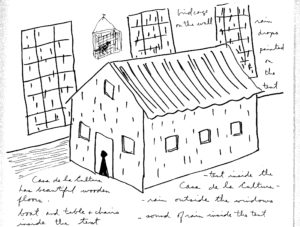 birdcage
on the wall
rain
drops
painted
on
the
tent
Casa de la Cultura
has beautiful wooden
floors.
boat and table + chairs
inside the tent
- tent inside the
Casa de la Cultura -
- rain outside the windows
- sound of rain inside the tent